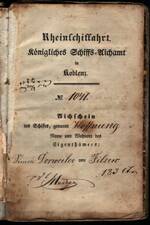 Rheinschiffahrt.
Königliches Schiffs-Aichamt
in
Koblenz.
№ 1041.
Aichschein
des Schiffes, genannt Hoffnung
Name und Wohnort des
Eigenthümers:
Dorweiler von